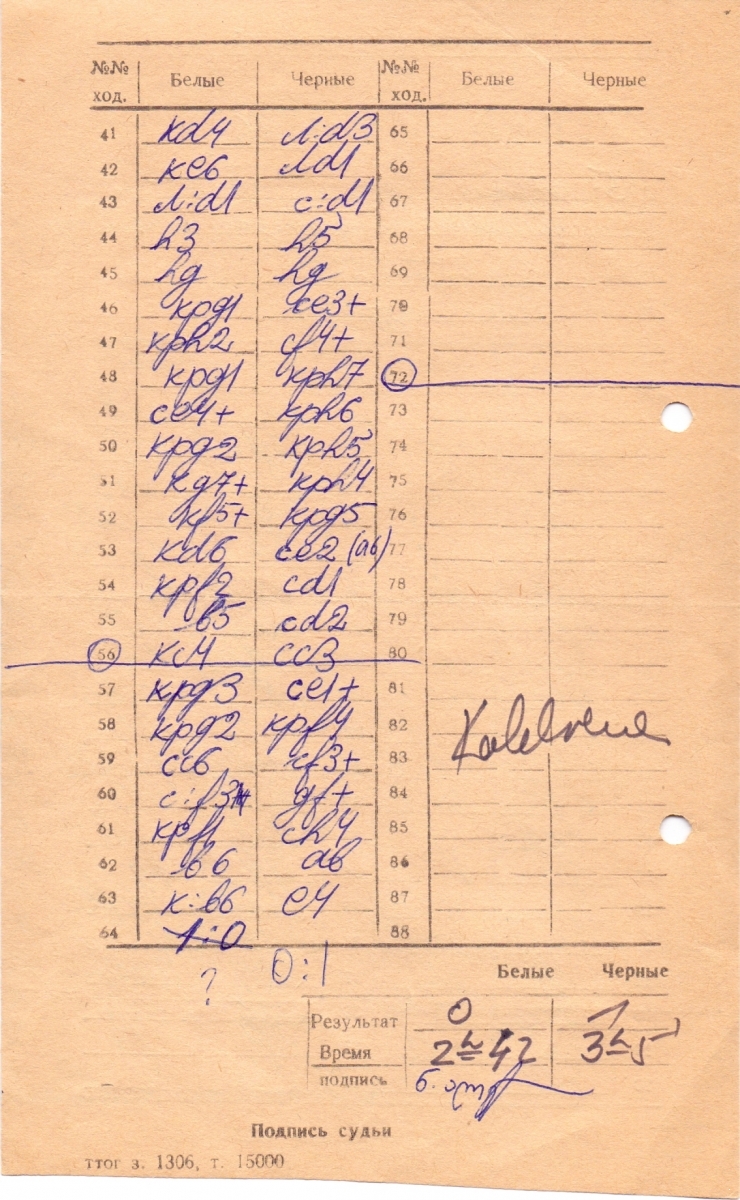 №№ ход. Белые Черные №№ ход. Белые Черные
41 кd4 л:d3 65
42 кe6 лd1 66
43 л:d1 c:d1 67
44 h3 h5 68
45 hg hg 69
46 крg1 сe3+ 70
47 крh2 сf4+ 71
48 крg1 крh7 72
49 сe4+ крh6 73
50 крg2 крh5 74
51 кg7+ крh4 75
52 кf5+ крg5 76
53 кd6 сe2 (a6) 77
54 крf2 сd1 78
55 b5 сd2 79
56 кc4 сc3 80
57 крg3 сe1+ 81
58 крg2 крf4 82
59 сc6 сf3+ 83
60 с:f3+ gf+ 84
61 крf1 сh4 85
62 b6 ab 86
63 к:b6 e4 87
64 1:0 88
? 0:1
Белые Черные
Результат 0 1
Время 2 42 3 5
подпись
Подпись судьи
ттог з. 1306, т. 15000